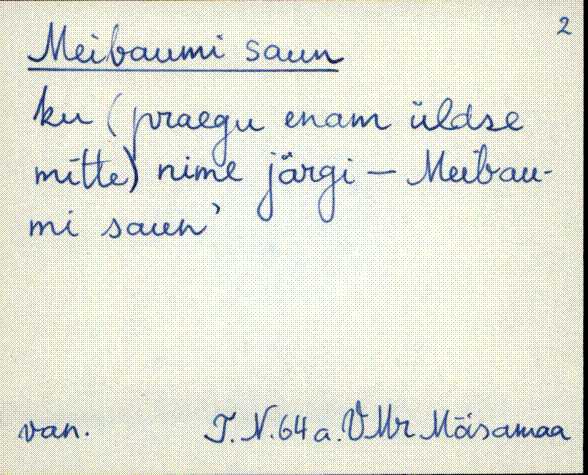 2
Meibaumi saun
ku (praegu enam üldse
mitte) nime järgi – Meibau-
mi saun'
van. T. N. 64 a. VMr Mõisamaa